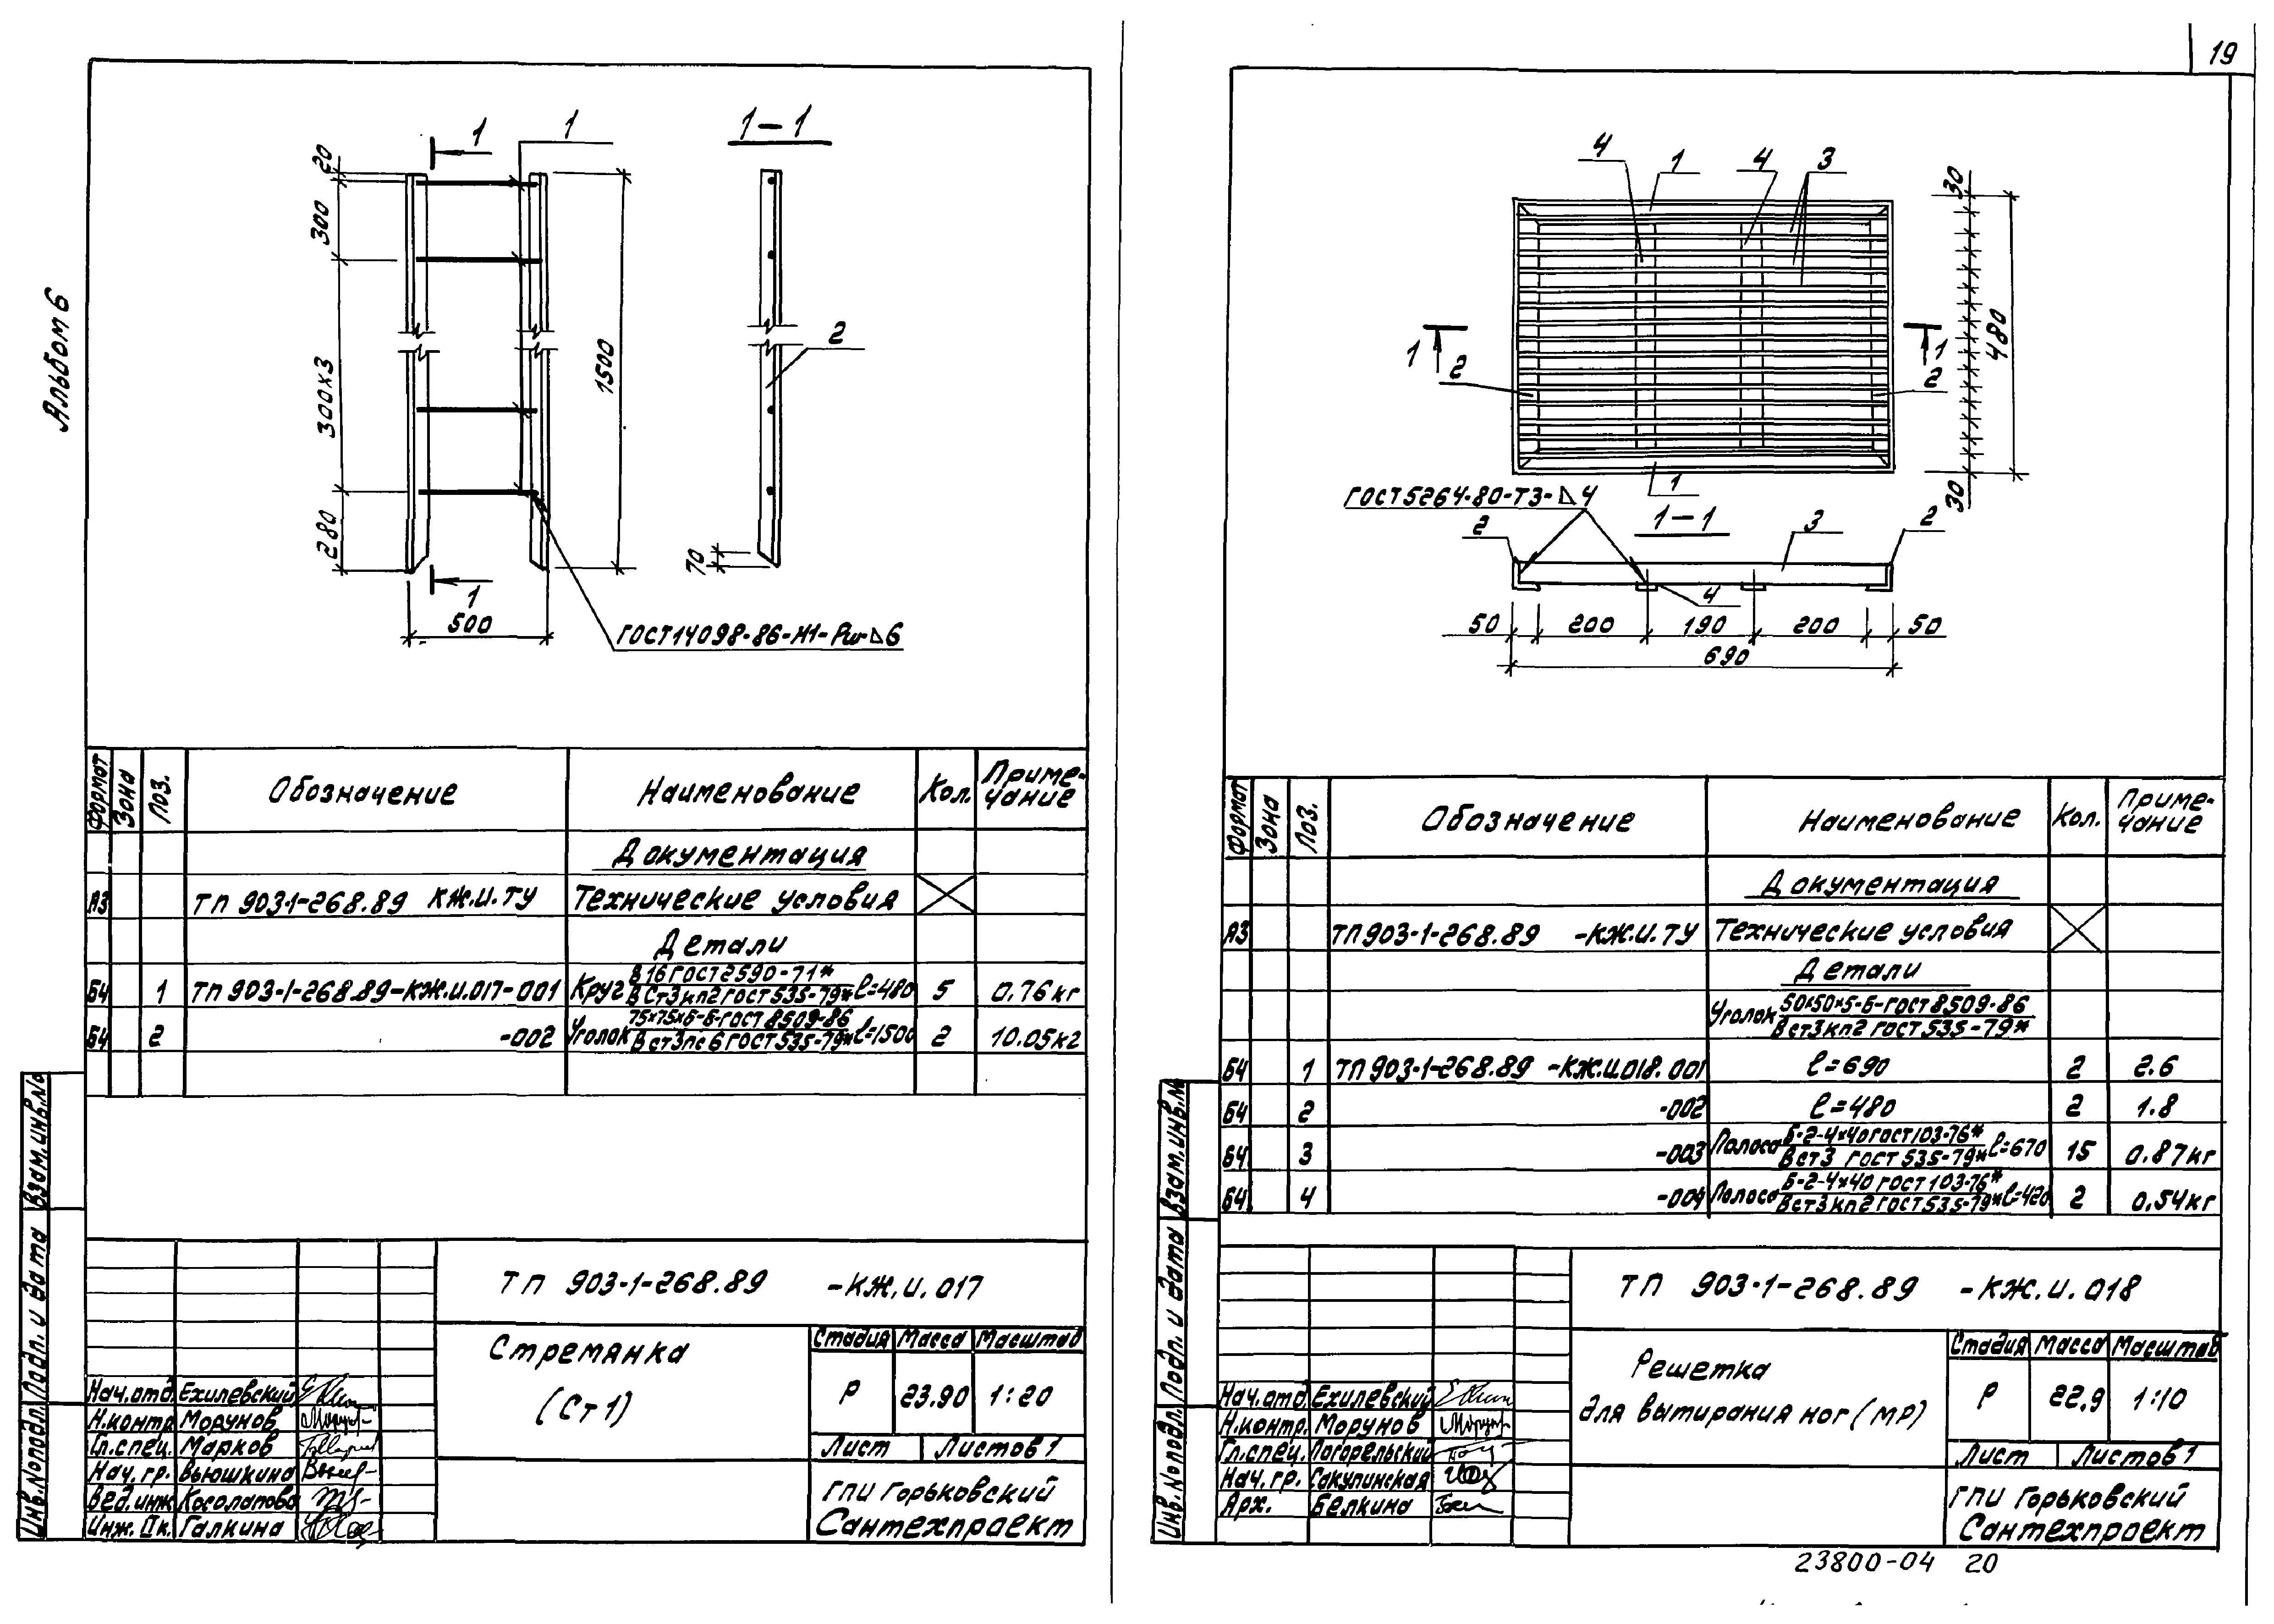 19
Альбом 6
1
1
1-1
20
300
300х3
280
1500
2
70
1
500
ГОСТ14098-86-Н1-Рш-△6
Формат
Зона
Поз.
Обозначение
Наименование
Кол.
Приме-
чание
Документация
А3 ТП 903-1-268.89 КЖ.И.ТУ Технические условия
Детали
Б4 1 ТП 903-1-268.89-КЖ.И.017-001 Круг В16 ГОСТ 2590-71* / ВСт3кп2 ГОСТ 535-79* ℓ=480 5 0.76кг
Б4 2 -002 Уголок 75х75х6-Б-ГОСТ 8509-86 / Вст3пс6 ГОСТ 535-79* ℓ=1500 2 10.05кг
ТП 903-1-268.89 -КЖ.И.017
Стремянка
(Ст1)
Стадия Масса Масштаб
Р 23.90 1:20
Лист Листов 1
ГПИ Горьковский
Сантехпроект
Нач.отд. Ехилевский
Н.контр. Морунов
Гл.спец. Марков
Нач.гр. Вьюшкина
Вед.инж. Косолапова
Инж. IIк. Галкина
Взам.инв.№
Подп. и дата
Инв.№подл.
4
1
4
3
30
480
30
1
1
2
2
1
ГОСТ5264-80-Т3-△4
1-1
2
3
2
4
50 200 190 200 50
690
Формат
Зона
Поз.
Обозначение
Наименование
Кол.
Приме-
чание
Документация
А3 ТП903-1-268.89 -КЖ.И.ТУ Технические условия
Детали
Уголок 50х50х5-Б-ГОСТ 8509-86 / Вст3кп2 ГОСТ 535-79*
Б4 1 ТП903-1-268.89 -КЖ.И.018.001 ℓ=690 2 2.6
Б4 2 -002 ℓ=480 2 1.8
Б4 3 -003 Полоса Б-2-4х40 ГОСТ103-76* / Вст3 ГОСТ 535-79* ℓ=670 15 0.87кг
Б4 4 -004 Полоса Б-2-4х40 ГОСТ 103-76* / Вст3кп2 ГОСТ 535-79* ℓ=420 2 0.54кг
ТП 903-1-268.89 -КЖ.И.018
Решетка
для вытирания ног (МР)
Стадия Масса Масштаб
Р 22,9 1:10
Лист Листов 1
ГПИ Горьковский
Сантехпроект
Нач.отд. Ехилевский
Н.контр. Морунов
Гл.спец. Погорельский
Нач.гр. Сакулинская
Арх. Белкина
Взам.инв.№
Подп. и дата
Инв.№подл.
23800-04 20